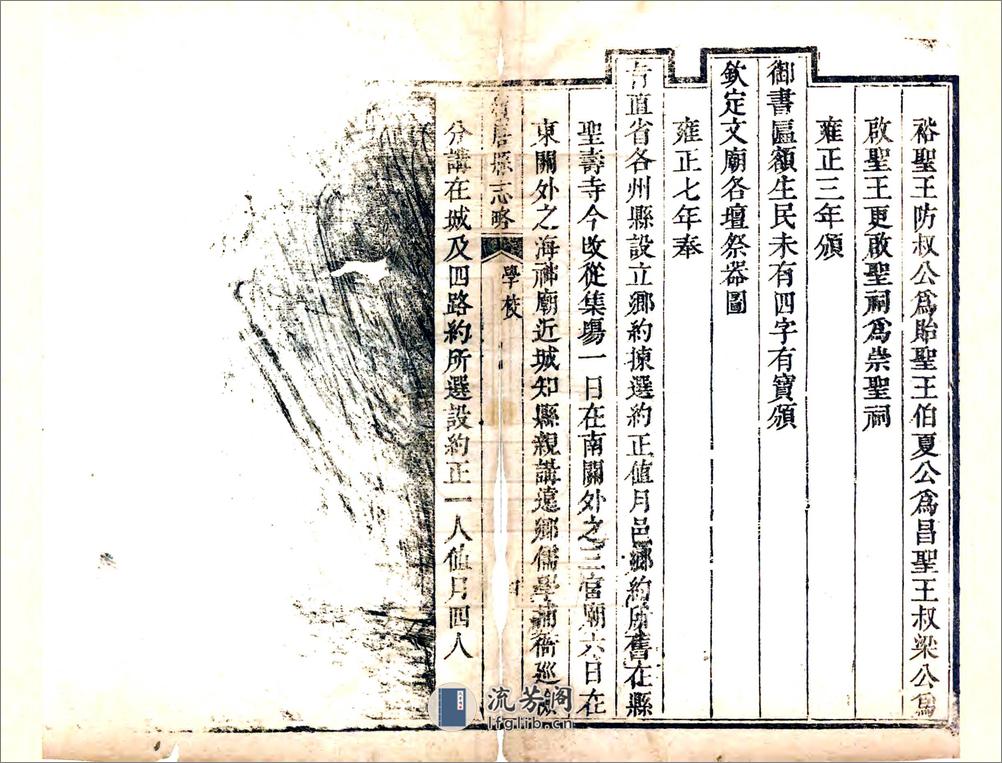 裕聖王防叔公爲貽聖王伯夏公爲昌聖王叔梁公爲
啟聖王更啟聖祠爲崇聖祠
雍正三年頒
御書匾額生民未有四字有寶頒
欽定文廟各壇祭器圖
雍正七年奉
旨直省各州縣設立鄉約揀選約正值月邑鄉約所舊在縣
聖壽寺今改從集場一日在南關外之三官廟六日在
東關外之海神廟近城知縣親講遠鄉儒學捕衙巡
縣志略
學校
分講在城及四路約所選設約正一人值月四人
流芳阁
lfglib.cn